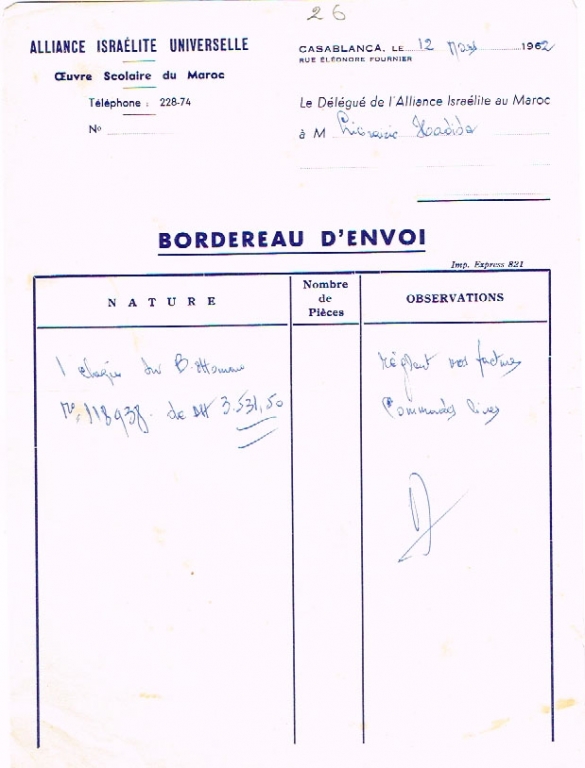 26
ALLIANCE ISRAÉLITE UNIVERSELLE
Œuvre Scolaire du Maroc
Téléphone : 228-74
No
CASABLANCA, LE 12 Mars 1962
RUE ÉLÉONORE FOURNIER
Le Délégué de l'Alliance Israélite au Maroc
à M Librairie Hadida
BORDEREAU D'ENVOI
Imp. Express 821
NATURE
Nombre
de
Pièces
OBSERVATIONS
1 chèque du B. Ottomane
No. 113938 de DH 3.531,50
réglant vos factures
Commandes livres